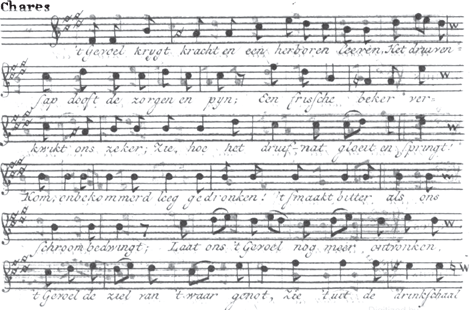 Chares
't Gevoel krygt kracht en een herboren leeven, Het druiven-
sap dooft de zorgen en pyn; Een frissche beker ver-
kwikt ons zeker; Zie, hoe het druif-nat gloeit en springt!
Kom, onbekommerd leeg gedronken! 't smaakt bitter als ons
schroom bedwingt; Laat ons 't Gevoel nog meer ontvonken.
't Gevoel de ziel van 't waar genot, Zie 't uit de drinkschaal